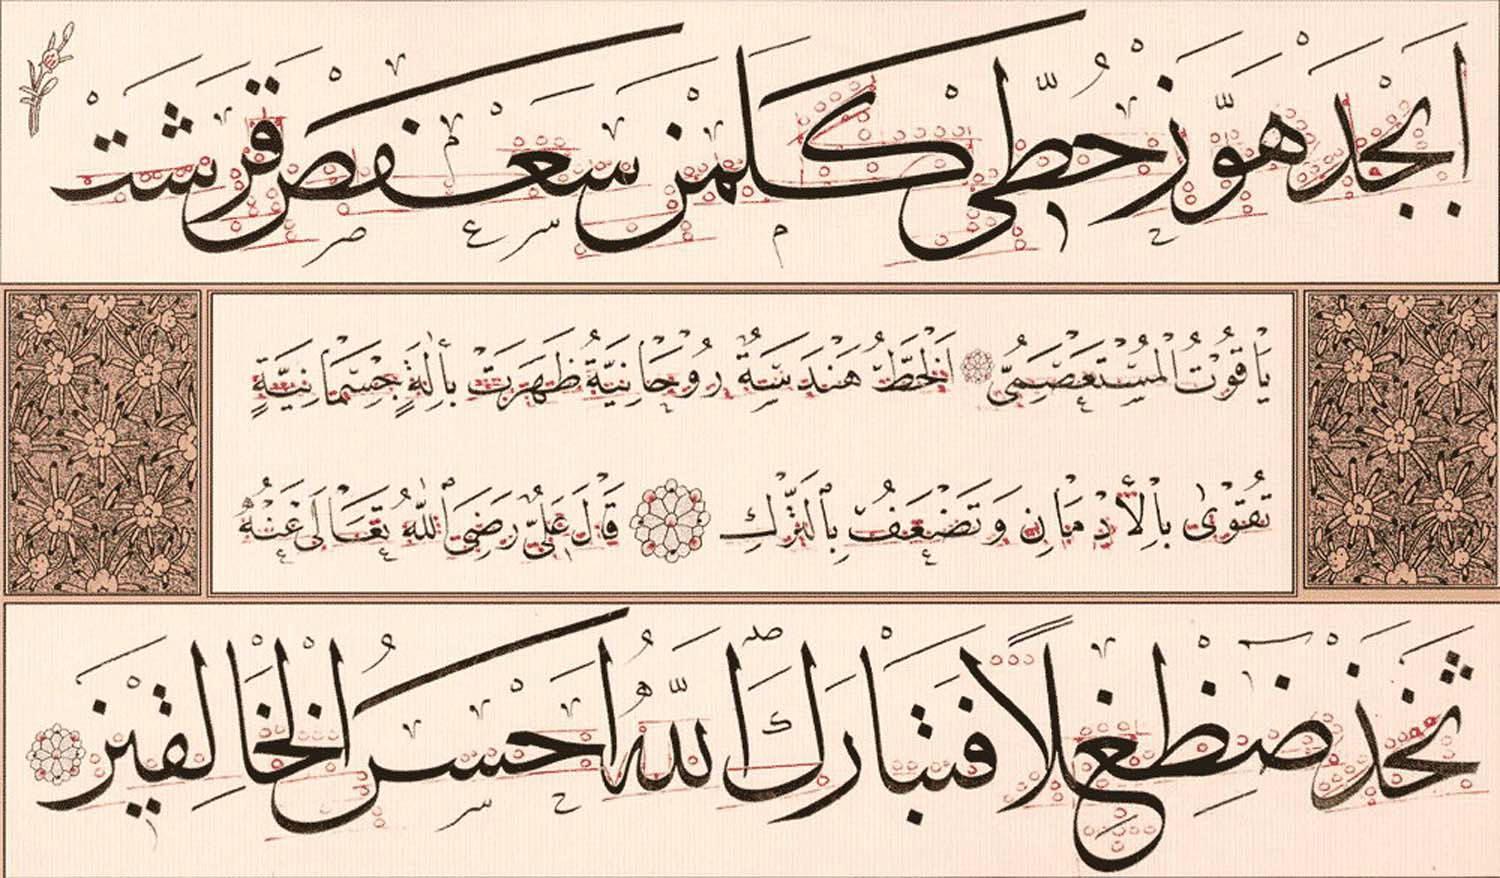 اَبْجَدْ هَوَّزْ حُطِّى كَلَمَنْ سَعْفَصْ قَرَشَتْ
يَاقُوتُ الْمُسْتَعْصَمِىُّ اَلْخَطُّ هَنْدَسَةٌ رُوْحَانِيَّةٌ ظَهَرَتْ بِاٰلَةٍ جِسْمَانِيَّةٍ
تُقْوٰى بِالْاِدْمَانِ وَتَضْعَفُ بِالتَّرْكِ قَالَ عَلِىٌّ رَضِىَ اللّٰهُ تَعَالٰى عَنْهُ
ثَخَّذْ ضَظِغْلًا فَتَبَارَكَ اللّٰهُ اَحْسَنُ الْخَالِقِينَ